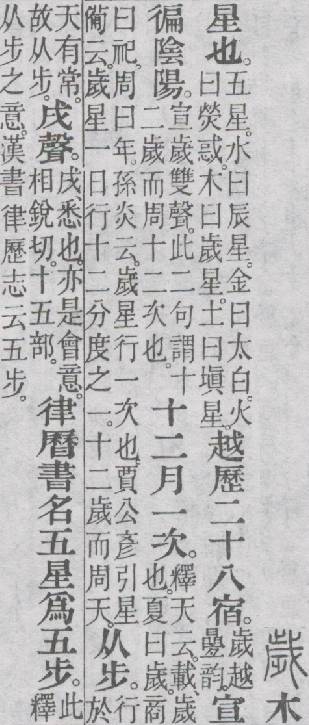 歲木
星也。五星。水曰辰星。金曰太白。火曰熒惑。木曰歲星。土曰塡星。越歷二十八宿。歲越曡韵。宣
徧陰陽。宣歲雙聲。此二句謂十二歲而周十二次也。十二月一次。釋天云。載歲也。夏曰歲。商
曰祀。周曰年。孫炎云。歲星行一次也。賈公彥引星備云。歲星一日行十二分度之一。十二歲而周天。从步。行於
天有常。故从步。戌聲。戌悉也。亦是會意。相銳切。十五部。律曆書名五星爲五步。此釋
从步之意。漢書律歷志云五步。